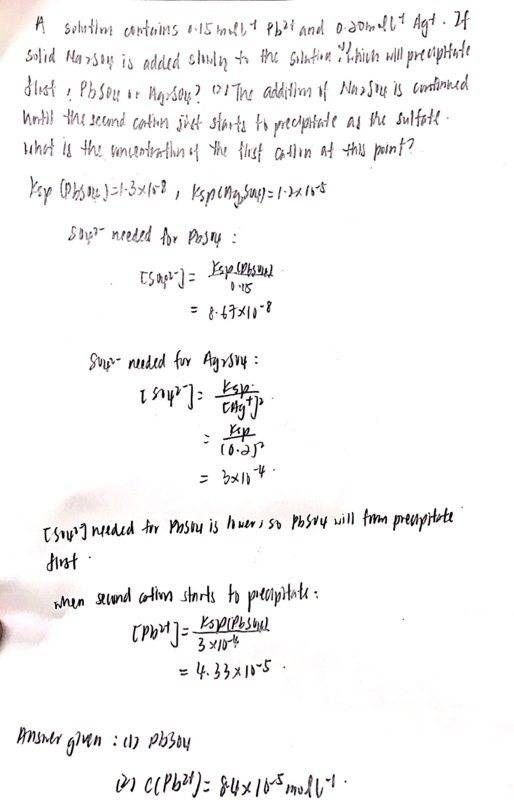 A solution contains 0.15 mol L⁻¹ Pb²⁺ and 0.20 mol L⁻¹ Ag⁺. If
solid Na₂SO₄ is added slowly to the solution, (1) which will precipitate
first, PbSO₄ or Ag₂SO₄? (2) The addition of Na₂SO₄ is continued
until the second cation just starts to precipitate as the sulfate.
What is the concentration of the first cation at this point?
Ksp (PbSO₄)=1.3×10⁻⁸, Ksp(Ag₂SO₄)=1.2×10⁻⁵
SO₄²⁻ needed for PbSO₄ :
[SO₄²⁻] = Ksp(PbSO₄)
0.15
= 8.67×10⁻⁸
SO₄²⁻ needed for Ag₂SO₄ :
[SO₄²⁻] = Ksp
[Ag⁺]²
= Ksp
(0.2)²
= 3×10⁻⁴.
[SO₄²⁻] needed for PbSO₄ is lower, so PbSO₄ will form precipitate
first.
when second cation starts to precipitate :
[Pb²⁺] = Ksp(PbSO₄)
3×10⁻⁴
= 4.33×10⁻⁵.
Answer given : (1) PbSO₄
(2) C(Pb²⁺) = 8.4×10⁻⁵ mol L⁻¹.